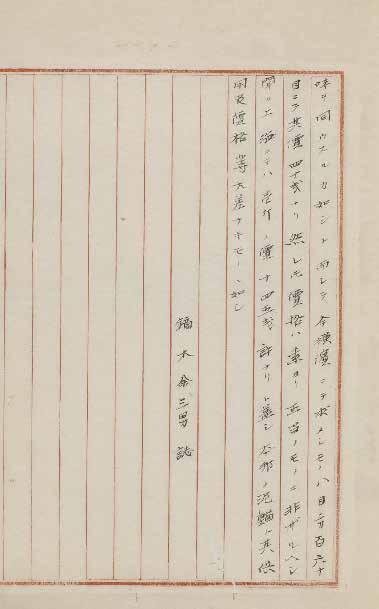 味ヲ同ウスルカ如シト而シテ今横濱ニテ求メシモノハ目方百六十
目ニシテ其價四十戔ナリ然レ𪜈價格ハ素ヨリ正当ノモノニ非ザルヘシ
聞ク上海ニテハ壱斤ノ價十四五戔許ナリト蓋シ本邦ノ泥鰌ト其供
用及價格等大差ナキモノヽ如シ
鏑木余三男誌